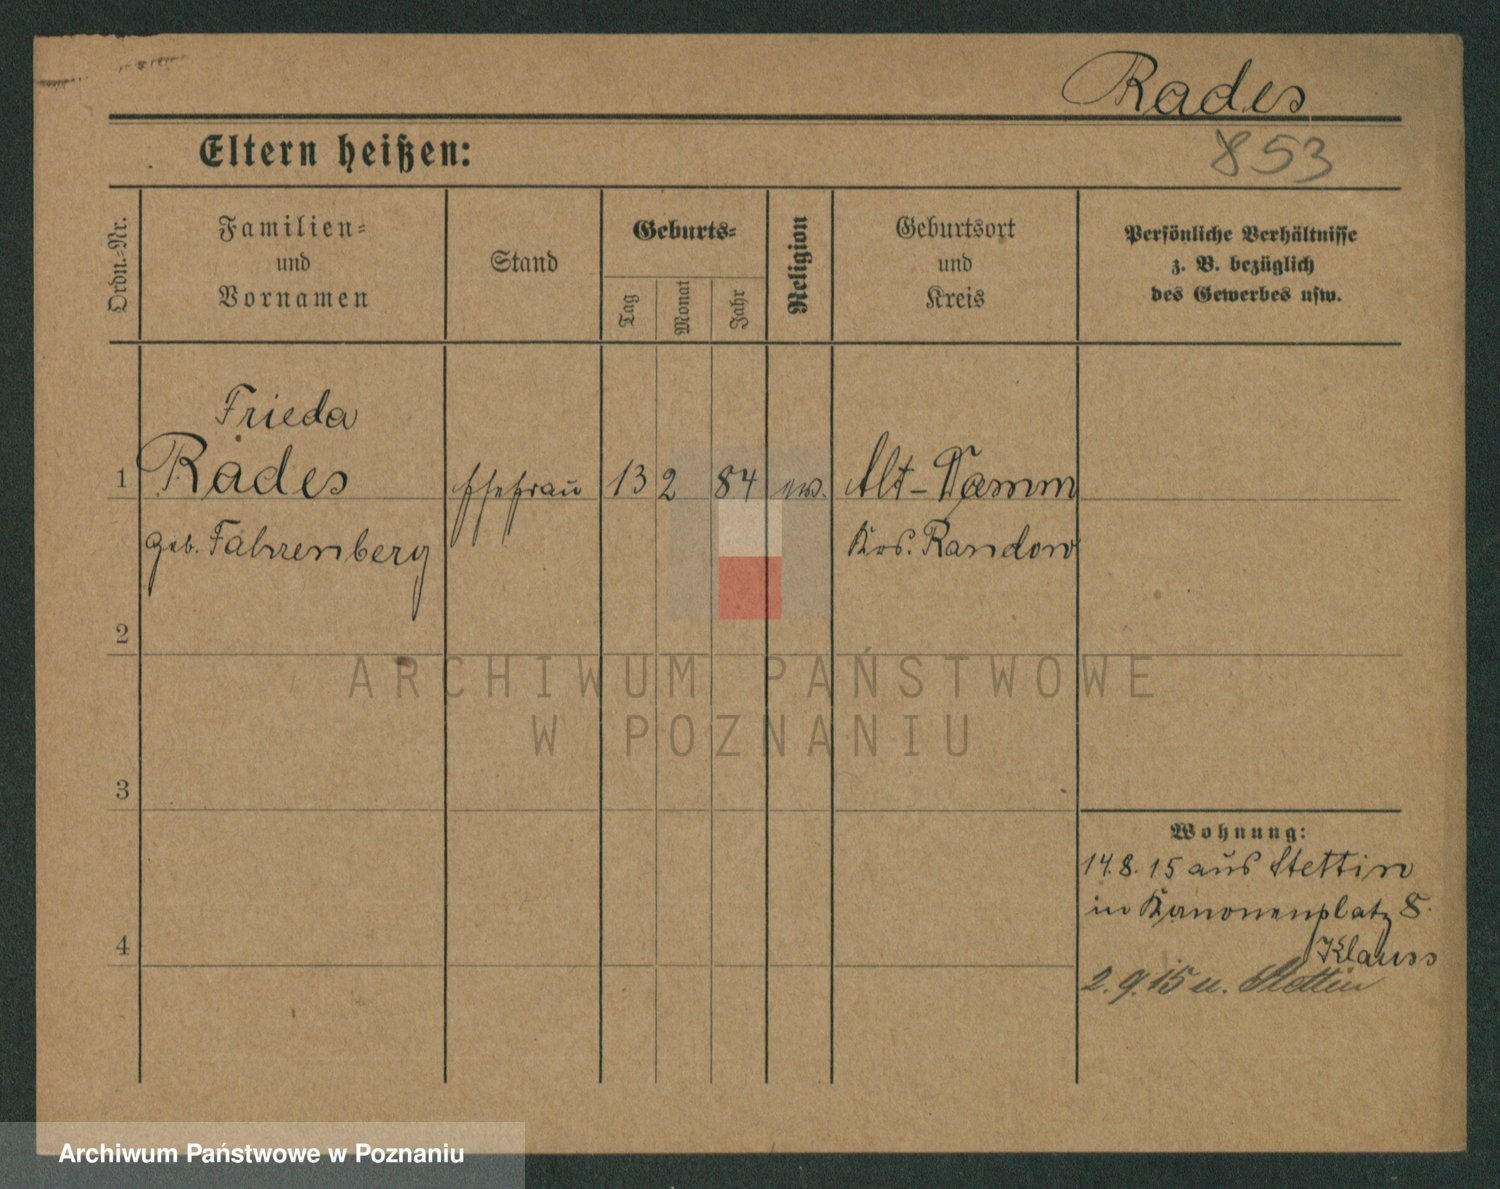 Rades
853
Eltern heißen:
Ordn.-Nr.
Familien-
und
Vornamen
Stand
Geburts-
Tag
Monat
Jahr
Religion
Geburtsort
und
Kreis
Persönliche Verhältnisse
z. B. bezüglich
des Gewerbes usw.
Frieda
1 Rades Ehefrau 13 2 84 ev. Alt-Damm
geb. Fahrenberg Krs. Randow
2
ARCHIWUM PAŃSTWOWE
W POZNANIU
3
Wohnung:
14.8.15 aus Stettin
in Kanonenplatz 8.
4
Klauss
2.9.15 n. Stettin
Archiwum Państwowe w Poznaniu